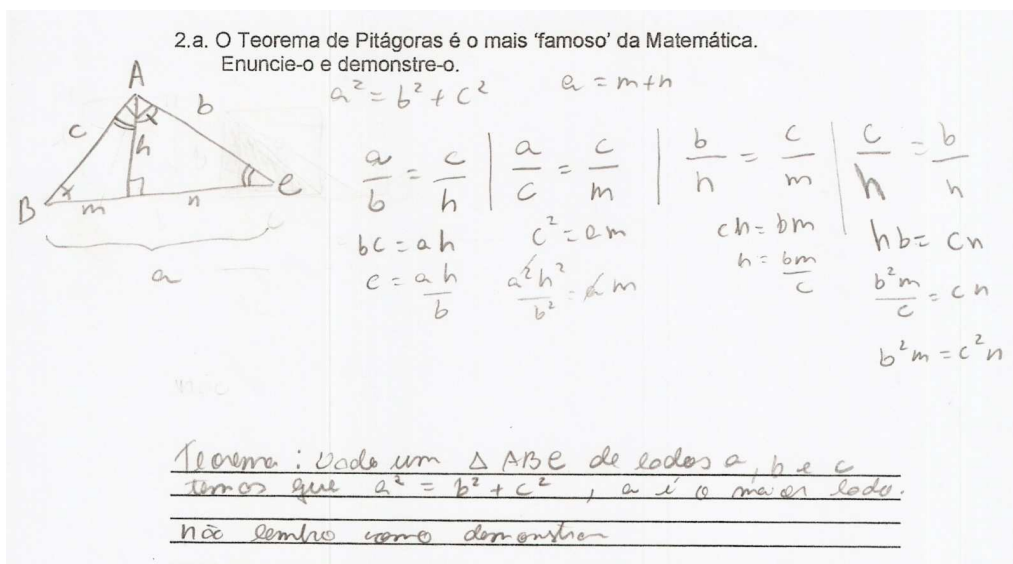 2.a. O Teorema de Pitágoras é o mais 'famoso' da Matemática.
Enuncie-o e demonstre-o.
a² = b² + c²  a = m+n
A
c b
h
B m n C
a
a/b = c/h | a/c = c/m | b/h = c/m | c/h = b/n
bc = ah  c² = am  ch = bm  hb = cn
c = ah/b  a²h²/b² = am  h = bm/c  b²m/c = cn
b²m = c²n
Teorema : Dado um △ ABC de lados a, b e c
temos que a² = b² + c² , a é o maior lado.
não lembro como demonstrar